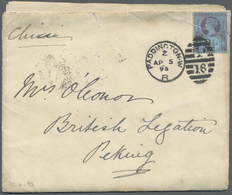 China
PADDINGTON.W
Z
AP 5
95
R
16
Mrs O'Conor
British Legation
Peking